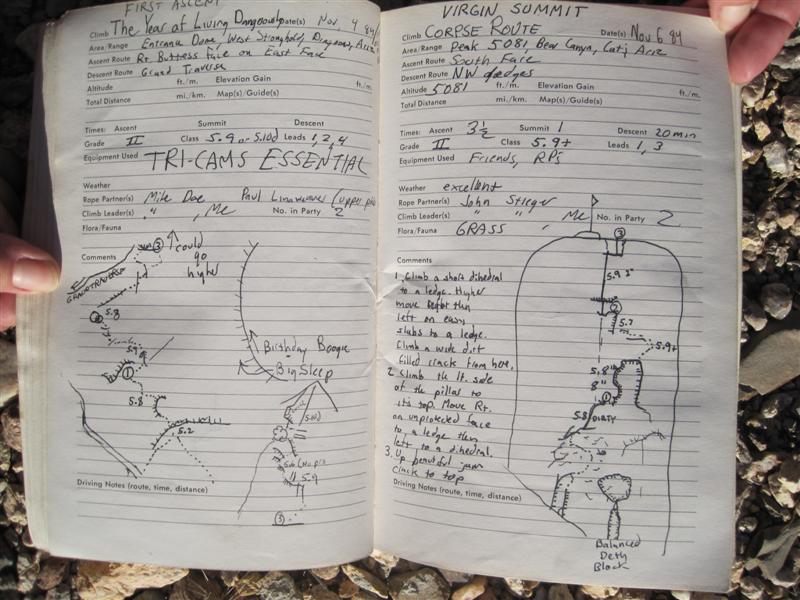 FIRST ASCENT
Climb The Year of Living Dangerously Date(s) Nov, 4 84
Area/Range Entrance Dome, West Stronghold, Dragoons, Ariz
Ascent Route Rt Buttress Face on East Face
Descent Route Grand Traverse
Altitude ft./m. Elevation Gain ft./m.
Total Distance mi./km. Map(s)/Guide(s)
Times: Ascent Summit Descent
Grade II Class 5.9 or 5.10d Leads 1, 2, 4
Equipment Used TRI-CAMS ESSENTIAL
Weather
Rope Partner(s) Mike Dae Paul Linaweaver (upper
Climb Leader(s) " , Me No. in Party 2
Flora/Fauna
Comments
3
could
go
higher
GRAND TRAVERSE
5.8
2
5.9
1
5.8
5.2
Birthday Boogie
Big Sleep
5.10d
5.9
3
Driving Notes (route, time, distance)
VIRGIN SUMMIT
Climb CORPSE ROUTE Date(s) Nov 6 84
Area/Range Peak 5081, Bear Canyn, Cat; Ariz
Ascent Route South Face
Descent Route NW ledges
Altitude 5081 ft./m. Elevation Gain ft./m.
Total Distance mi./km. Map(s)/Guide(s)
Times: Ascent 3½ Summit 1 Descent 20 min
Grade II Class 5.9+ Leads 1, 3
Equipment Used Friends, RP's
Weather excellent
Rope Partner(s) John Stieger
Climb Leader(s) " " Me No. in Party 2
Flora/Fauna GRASS
Comments
1. Climb a short dihedral
to a ledge. Higher
move then
left on easy
slabs to a ledge.
Climb a wide dirt
filled crack from here.
2 Climb the lt. side
of the pillar to
it's top. Move Rt.
on unprotected face
to a ledge then
left to a dihedral.
3. Up beautiful jam
crack to top
3
5.9 2"
2
5.7
5.9+
5.8
8"
1
5.8 DIRTY
Balanced
Deth
Block
Driving Notes (route, time, distance)